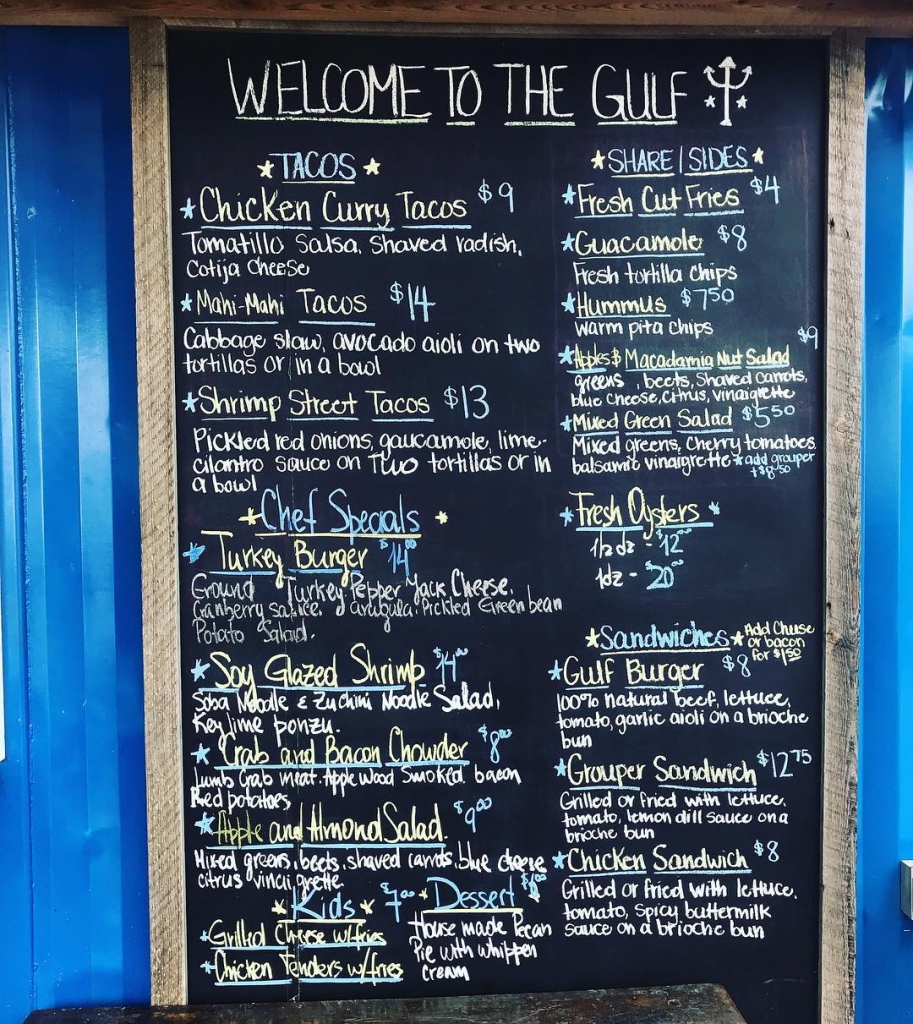 WELCOME TO THE GULF
TACOS
Chicken Curry Tacos $9
Tomatillo Salsa, Shaved radish,
Cotija Cheese
Mahi-Mahi Tacos $14
Cabbage slaw, avocado aioli on two
tortillas or in a bowl
Shrimp Street Tacos $13
Pickled red onions, gaucamole, lime-
cilantro sauce on Two tortillas or in
a bowl
Chef Specials
Turkey Burger $14.00
Ground Turkey, Pepper Jack Cheese,
Cranberry sauce, arugula. Pickled Green bean
Potato Salad.
Soy Glazed Shrimp $14.00
Soba Noodle & Zuchini Noodle Salad,
Key lime ponzu.
Crab and Bacon Chowder $8.00
Lumb Crab meat. Apple Wood Smoked bacon
Red potatoes
Apple and Almond Salad. $9.00
Mixed greens, beets, shaved carrots, blue cheese
citrus vinaigrette
Kids $7.00
Grilled Cheese w/fries
Chicken Tenders w/fries
Dessert
House made Pecan
Pie with whippen
cream
SHARE | SIDES
Fresh Cut Fries $4
Guacamole $8
Fresh tortilla chips
Hummus $7.50
warm pita chips
$9
Apples $ Macadamia Nut Salad
greens, beets, Shaved carrots,
blue cheese, citrus, vinaigrette
Mixed Green Salad $5.50
Mixed greens, cherry tomatoes
balsamic vinaigrette *add grouper
+$8.50
Fresh Oysters
1/2 dz - $12.00
1dz - $20.00
Sandwiches
Add Cheese
or bacon
for $1.50
Gulf Burger $8
100% natural beef, lettuce,
tomato, garlic aioli on a brioche
bun
Grouper Sandwich $12.75
Grilled or fried with lettuce,
tomato, lemon dill sauce on a
brioche bun
Chicken Sandwich $8
Grilled or fried with lettuce,
tomato, spicy buttermilk
sauce on a brioche bun